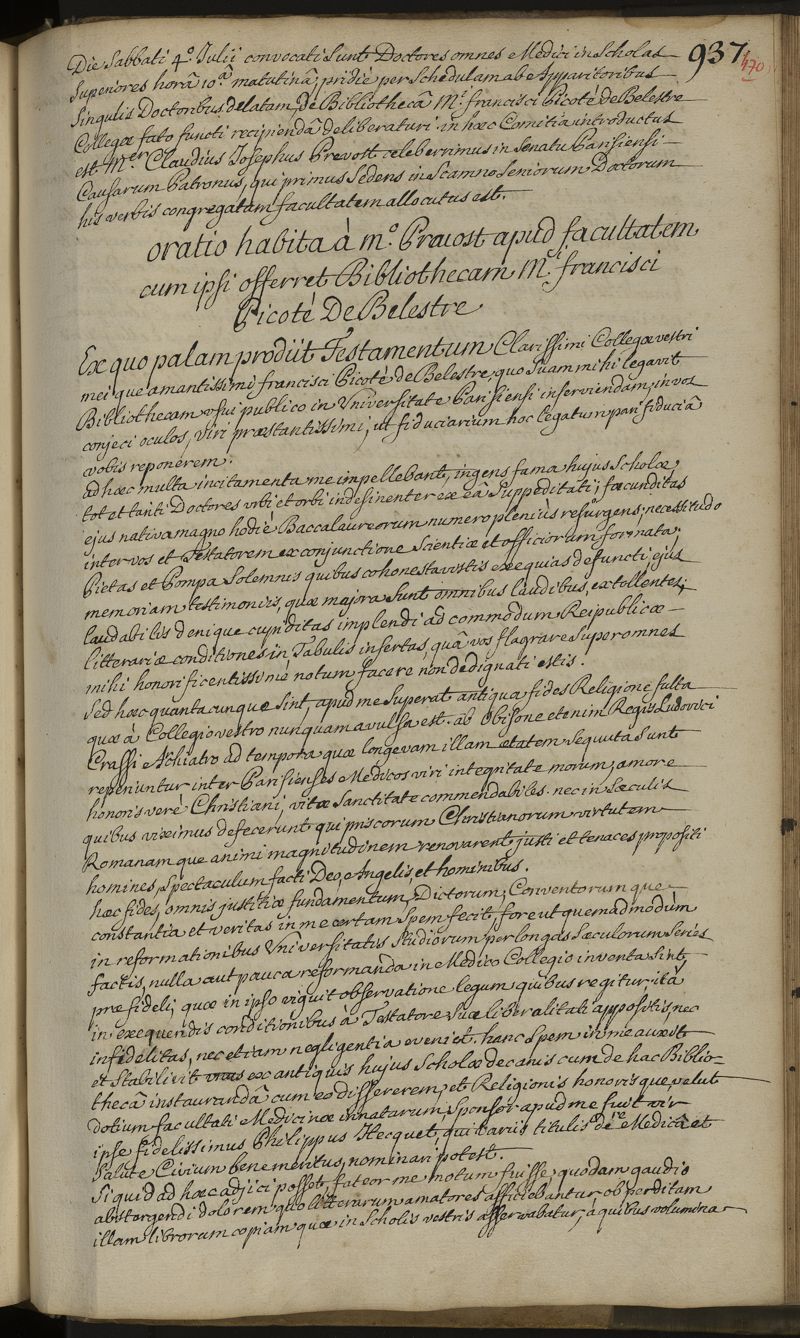 937
470
Die Sabbati 4.º Julii convocati sunt Doctores omnes Medici in Scholas
Superiores horâ 10.â matutinâ; pridie per Schedulam ab Apparitoribus
Singulis Doctoribus delatam, de Bibliothecâ M.i francisci Picoté de Belestre
Collegæ fato functi recipiendâ deliberaturi. in hæc Comitia introductus
est M.er Claudius Josephus Prevost celeberrimus in Senatu Parisiensi
Causarum Patronus, qui primus Sedens in Scamno Seniorum Doctorum
his verbis congregatam facultatem allocutus est.
oratio habita à m.º Prevost apud facultatem
cum ipsi offerret Bibliothecam M.i francisci
Picoté De Belestre
Ex quo palam prodiit Testamentum Clarissimi Collegæ vestri
meique amantissimi francisci Picoté de Belestre, quo Suam mihi legavit
Bibliothecam usui publico in Universitate Parisiensi inserviendam, in vos
conjeci oculos, Viri præstantissimi, ut fiduciarium hoc legatum pari fiduciâ
vobis reponerem.
ad hæc multa incitamenta me impellebant, ingens fama hujus Scholæ,
tot et tanti Doctores urbi et orbi indesinenter ex eâ Suppeditati; fœcunditas
ejus nativa magno hodiè Baccalaureorum numero pleniùs resurgens; necessitudo
inter vos et Testatorem ex conjunctione Scientiæ et officiorum formata;
Pietas et Pompa Solemnis quibus cohonestavistis exequias defuncti, ejus
memoriam testimoniis, quæ majora sunt omnibus laudibus, extollentes;
laudabilis denique cupiditas implendi ad commodum Reipublicæ
litterariæ conditiones in Tabulis insertas, quâ vos flagrare Super omnes
mihi honorificentissimè notum facere non dedignati estis.
Sed hæc quantacunque Sint, apud me Superat antiqua fides Religione fulta
quæ à Collegio vestro nunquam avulsa est. ab Obisone etenim Regis Ludovici
Crassi Achiatro ad tempora quæ longevam illam ætatem Sequuta Sunt
reperiuntur inter Parisienses Medicos viri integritate morum, amore
honoris verè Christiani, vitæ Sanctitate commendabiles. nec in Sæculis
quibus viximus defecerunt qui priscorum Christianorum virtutem
Romanamque animi magnitudinem renovarent, justi et tenaces propositi
homines, Spectaculum facti Deo, Angelis, et hominibus.
hæc fides, omnis justitiæ fundamentum, Dictorum, Conventorumque
constantia et veritas in me certam Spem fecit, fore ut quemadmodùm
in reformationibus Universitatis Studiorum per longas Sæculorum Series
factis, nulla aut pauca reformanda in Medico Collegio inventa Sint,
præ fideli, quæ in ipso viguit observatione legum quibus regitur, ità
in exequendis conditionibus à Testatore Suæ liberalitati appositis, nec
infidelitas, nec etiam negligentia eveniet. hanc Spem in me auxit
et Stabilivit ex antiquis hujus Scholæ decanis cum de hac Biblio-
thecâ instaurandâ cum eo dissererem, et Religionis honorisque velut
dotium facultati Medicinæ innatarum, Sponsor apud me fuit vir
ipse fidelissimus Philippus Hecquet, qui variis titulis de re Medicâ et
Salute Civium benemeritus, nominari potest.
Si quid ad hæc adjici posset, fateor me motum fuisse, quodam gaudio
abstergendi dolorem quo litterarum amatores afficiebantur ob perditam
illam librorum copiam quæ in Scholis vestris asservabatur, à quibus volumina